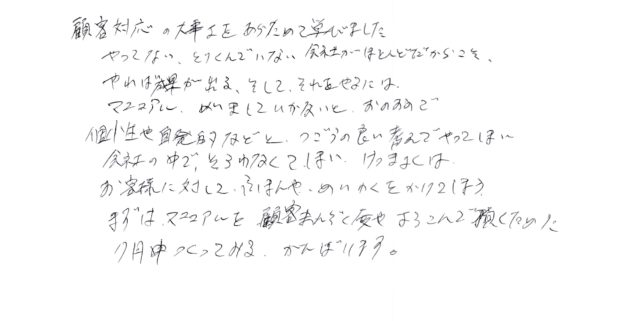 顧客対応の大事さをあらためて学びました
やってない、とりくんでいない会社がほとんどだからこそ、
やれば成果が出る、そして、それをやるには、
マニュアル、めいましていかないと、おのおので
個性や自発的などと、つごうの良い考えでやってしまい
会社の中で、そろわなくてしまい、けっきょくは、
お客様に対して、ふまんや、めいわくをかけてしまう
まずは、マニュアルを顧客まんぞく度やよろこんで頂くために
7月中つくってみる、がんばります。